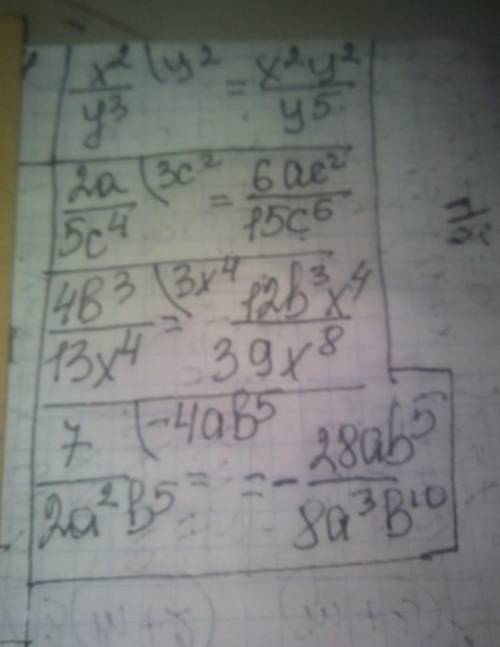 x²/y³ (y² = x²y²/y⁵
2a/5c⁴ (3c² = 6ac²/15c⁶
4b³/13x⁴ (3x⁴ = 12b³x⁴/39x⁸
7/2a²b⁵ (-4ab⁵ = = - 28ab⁵/8a³b¹⁰